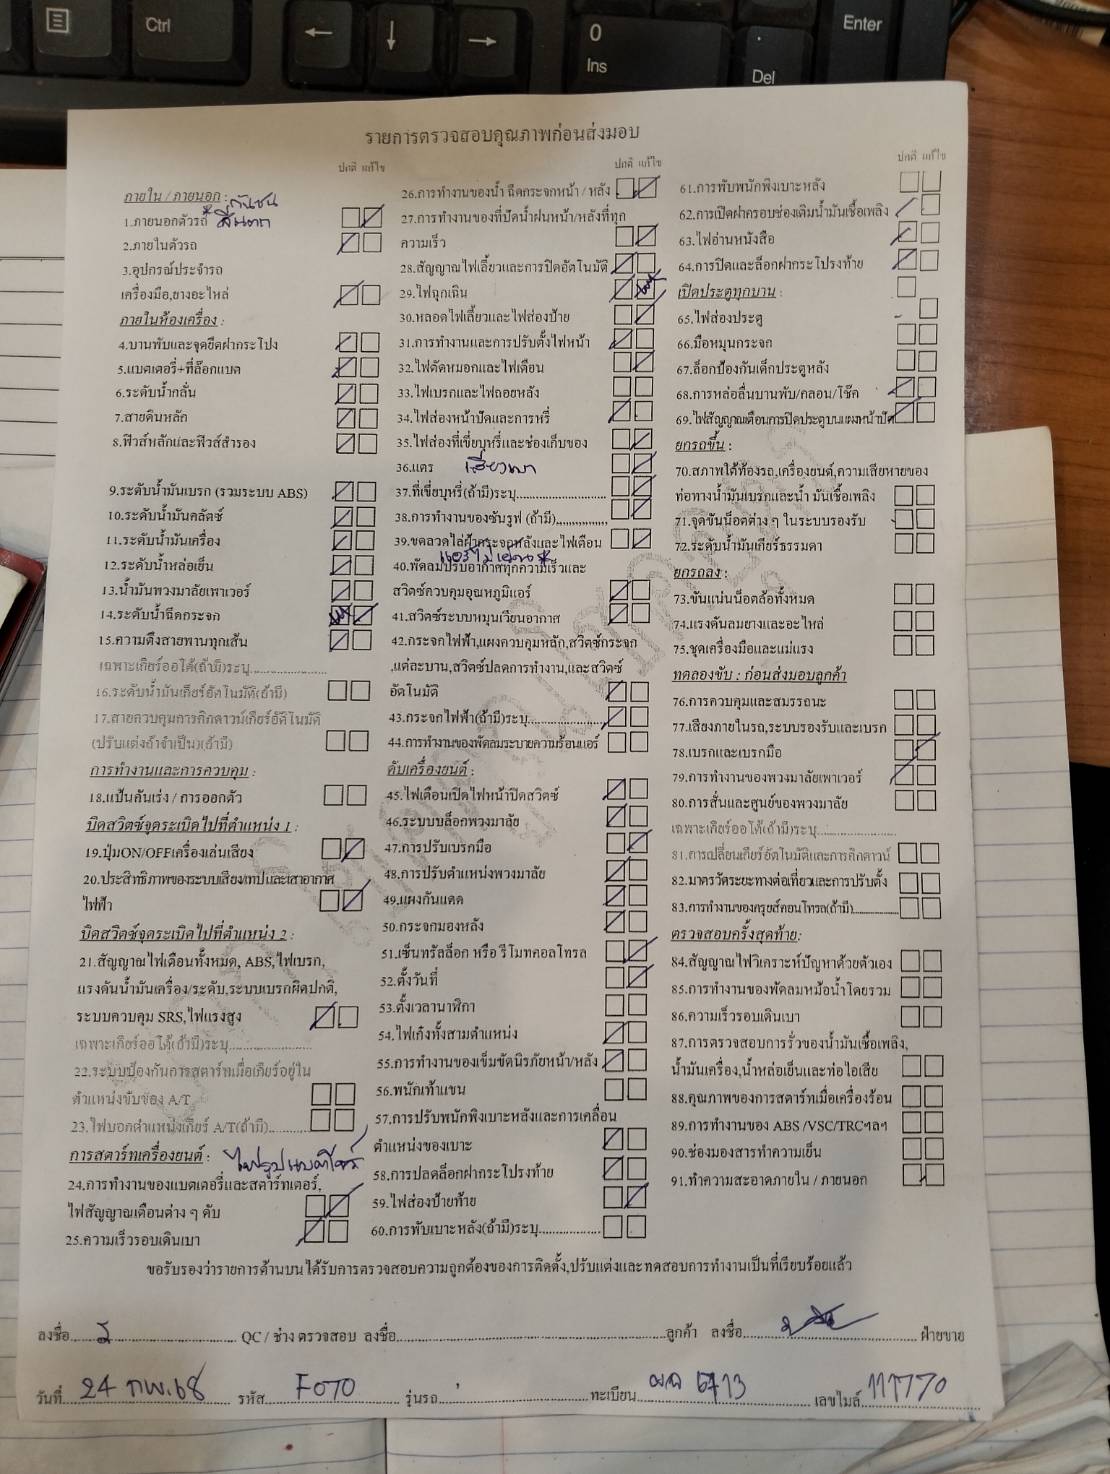 Ctrl
0
Ins
Del
Enter
รายการตรวจสอบคุณภาพก่อนส่งมอบ
ปกติ แก้ไข
ภายใน / ภายนอก : กันชน
1.ภายนอกตัวรถ * สีแตก
2.ภายในตัวรถ
3.อุปกรณ์ประจำรถ
เครื่องมือ,ยางอะไหล่
ภายในห้องเครื่อง :
4.บานพับและจุดยึดฝากระโปง
5.แบตเตอรี่+ที่ล๊อกแบต
6.ระดับน้ำกลั่น
7.สายดินหลัก
8.ฟิวส์หลักและฟิวส์สำรอง
9.ระดับน้ำมันเบรก (รวมระบบ ABS)
10.ระดับน้ำมันคลัตซ์
11.ระดับน้ำมันเครื่อง
12.ระดับน้ำหล่อเย็น
13.น้ำมันพวงมาลัยเพาเวอร์
14.ระดับน้ำฉีดกระจก
15.ความตึงสายพานทุกเส้น
เฉพาะเกียร์ออโต้(ถ้ามี)ระบุ
16.ระดับน้ำมันเกียร์อัตโนมัติ(ถ้ามี)
17.สายควบคุมการคิกดาวน์เกียร์อัติโนมัติ
(ปรับแต่งถ้าจำเป็น)(ถ้ามี)
การทำงานและการควบคุม :
18.แป้นคันเร่ง / การออกตัว
บิดสวิตซ์จุดระเบิดไปที่ตำแหน่ง 1 :
19.ปุ่มON/OFFเครื่องเล่นเสียง
20.ประสิทธิภาพของระบบเสียง/เทปและเสาอากาศ
ไฟฟ้า
บิดสวิตซ์จุดระเบิดไปที่ตำแหน่ง 2 :
21.สัญญาณไฟเตือนทั้งหมด, ABS,ไฟเบรก,
แรงดันน้ำมันเครื่อง/ระดับ,ระบบเบรกผิดปกติ,
ระบบควบคุม SRS,ไฟแรงสูง
เฉพาะเกียร์ออโต้(ถ้ามี)ระบุ
22.ระบบป้องกันการสตาร์ทเมื่อเกียร์อยู่ใน
ตำแหน่งขับของ A/T
23.ไฟบอกตำแหน่งเกียร์ A/T(ถ้ามี)
การสตาร์ทเครื่องยนต์ : ไฟรูปแบตโชว์
24.การทำงานของแบตเตอรี่และสตาร์ทเตอร์,
ไฟสัญญาณเตือนต่าง ๆ ดับ
25.ความเร็วรอบเดินเบา
ปกติ แก้ไข
26.การทำงานของน้ำ ฉีดกระจกหน้า / หลัง
27.การทำงานของที่ปัดน้ำฝนหน้า/หลังที่ทุก
ความเร็ว
28.สัญญาณไฟเลี้ยวและการปิดอัตโนมัติ
29.ไฟฉุกเฉิน
30.หลอดไฟเลี้ยวและไฟส่องป้าย
31.การทำงานและการปรับตั้งไฟหน้า
32.ไฟตัดหมอกและไฟเตือน
33.ไฟเบรกและไฟถอยหลัง
34.ไฟส่องหน้าปัดและการหรี่
35.ไฟส่องที่เขี่ยบุหรี่และช่องเก็บของ
36.แตร เสียงเบา
37.ที่เขี่ยบุหรี่(ถ้ามี)ระบุ
38.การทำงานของซันรูฟ (ถ้ามี)
39.ขดลวดไล่ฝ้ากระจกหลังและไฟเตือน
แอร์ไม่เย็น *
40.พัดลมปรับอากาศทุกความเร็วและ
สวิตซ์ควบคุมอุณหภูมิแอร์
41.สวิตซ์ระบบหมุนเวียนอากาศ
42.กระจกไฟฟ้า,แผงควบคุมหลัก,สวิตซ์กระจก
,แต่ละบาน,สวิตซ์ปลดการทำงาน,และสวิตซ์
อัตโนมัติ
43.กระจกไฟฟ้า(ถ้ามี)ระบุ
44.การทำงานของพัดลมระบายความร้อนแอร์
ดับเครื่องยนต์ :
45.ไฟเตือนเปิดไฟหน้าปิดสวิตซ์
46.ระบบบล็อกพวงมาลัย
47.การปรับเบรกมือ
48.การปรับตำแหน่งพวงมาลัย
49.แผงกันแดด
50.กระจกมองหลัง
51.เซ็นทรัลล็อก หรือ รีโมทคอลโทรล
52.ตั้งวันที่
53.ตั้งเวลานาฬิกา
54.ไฟเก๋งทั้งสามตำแหน่ง
55.การทำงานของเข็มขัดนิรภัยหน้า/หลัง
56.พนักเท้าแขน
57.การปรับพนักพิงเบาะหลังและการเคลื่อน
ตำแหน่งของเบาะ
58.การปลดล็อกฝากระโปรงท้าย
59.ไฟส่องป้ายท้าย
60.การพับเบาะหลัง(ถ้ามี)ระบุ
ปกติ แก้ไข
61.การพับพนักพิงเบาะหลัง
62.การเปิดฝาครอบช่องเติมน้ำมันเชื้อเพลิง
63.ไฟอ่านหนังสือ
64.การปิดและล็อกฝากระโปรงท้าย
เปิดประตูทุกบาน :
65.ไฟส่องประตู
66.มือหมุนกระจก
67.ล็อกป้องกันเด็กประตูหลัง
68.การหล่อลื่นบานพับ/กลอน/โช๊ค
69.ไฟสัญญาณเตือนการปิดประตูบนแผงหน้าปัด
ยกรถขึ้น :
70.สภาพใต้ท้องรถ,เครื่องยนต์,ความเสียหายของ
ท่อทางน้ำมันเบรกและน้ำ มันเชื้อเพลิง
71.จุดขันน็อตต่าง ๆ ในระบบรองรับ
72.ระดับน้ำมันเกียร์ธรรมดา
ยกรถลง :
73.ขันแน่นน็อตล้อทั้งหมด
74.แรงดันลมยางและอะไหล่
75.ชุดเครื่องมือและแม่แรง
ทดลองขับ : ก่อนส่งมอบลูกค้า
76.การควบคุมและสมรรถนะ
77.เสียงภายในรถ,ระบบรองรับและเบรก
78.เบรกและเบรกมือ
79.การทำงานของพวงมาลัยเพาเวอร์
80.การสั่นและศูนย์ของพวงมาลัย
เฉพาะเกียร์ออโต้(ถ้ามี)ระบุ
81.การเปลี่ยนเกียร์อัตโนมัติและการคิกดาวน์
82.มาตรวัดระยะทางต่อเที่ยวและการปรับตั้ง
83.การทำงานของครุยส์คอนโทรล(ถ้ามี)
ตรวจสอบครั้งสุดท้าย:
84.สัญญาณไฟวิเคราะห์ปัญหาด้วยตัวเอง
85.การทำงานของพัดลมหม้อน้ำโดยรวม
86.ความเร็วรอบเดินเบา
87.การตรวจสอบการรั่วของน้ำมันเชื้อเพลิง,
น้ำมันเครื่อง,น้ำหล่อเย็นและท่อไอเสีย
88.คุณภาพของการสตาร์ทเมื่อเครื่องร้อน
89.การทำงานของ ABS /VSC/TRCฯลฯ
90.ช่องมองสารทำความเย็น
91.ทำความสะอาดภายใน / ภายนอก
ขอรับรองว่ารายการด้านบนได้รับการตรวจสอบความถูกต้องของการติดตั้ง,ปรับแต่งและทดสอบการทำงานเป็นที่เรียบร้อยแล้ว
ลงชื่อ QC / ช่าง ตรวจสอบ ลงชื่อ ลูกค้า ลงชื่อ ฝ่ายขาย
วันที่ 24 กพ.68 รหัส F070 รุ่นรถ ทะเบียน 6713 เลขไมล์ 111770